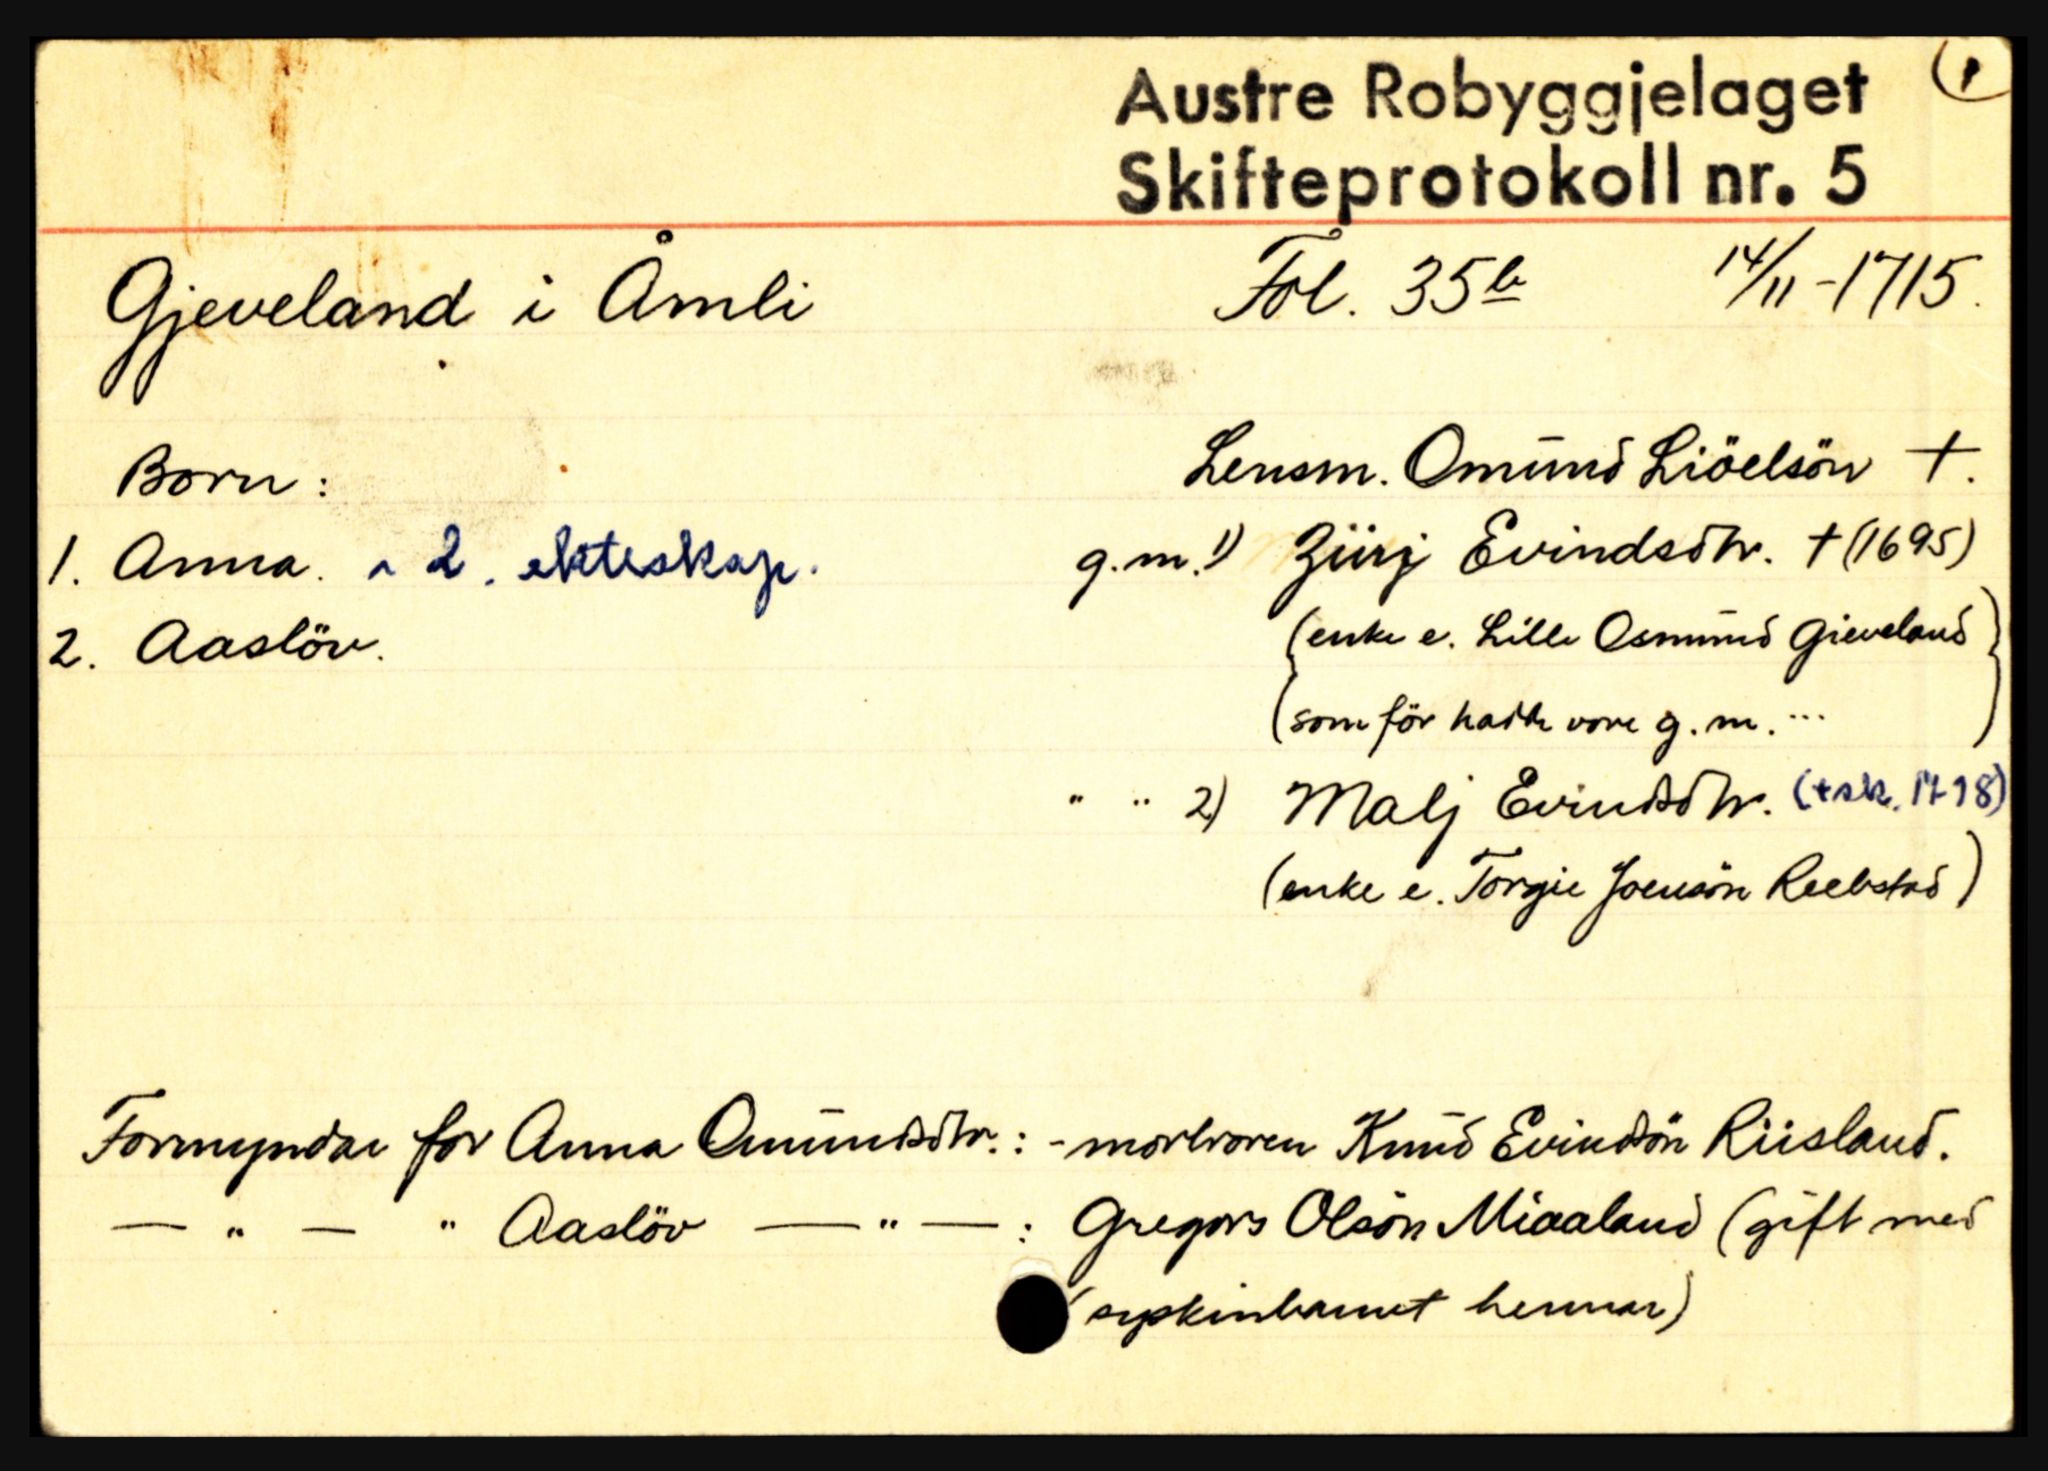 Austre Robyggjelaget
Skifteprotokoll nr. 5
Gjeveland i Åmli Fol. 35b 14/11-1715.
Born: Lensm. Omünd Liöelsön +.
1. Anna. 2. ekteskap. g.m. 1) Züri Evindsdtr. +(1695)
(enke e. Lille Osmünd Gieveland
2. Aaslöv.
(som för hadde vore g.m. ...)
" " 2) Malj Evindsdtr. (+sk. 1718)
(enke e. Torgie Joensön Reebstad)
Formyndar for Anna Omündsdtr.: - morbroren Knüd Evindsön Riisland.
— " — " Aaslöv — " — : Gregors Olsön Miaaland (gift med
syskinbarnet hennar)